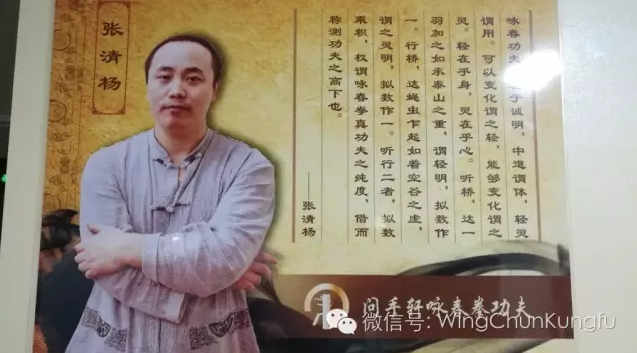 张清杨
咏春功夫
乎诚明，中道谓体，轻灵
谓用。可以变化谓之轻，能够变化谓之
灵。轻在乎身，灵在乎心。听桥，达一
羽加之如承泰山之重，谓轻明，拟数作
一。行桥，达蝇虫乍起如着空谷之虚，
谓之灵明，拟数作一。听行二者，拟数
乘积，权谓咏春拳真功夫之纯度，借而
称测功夫之高下也。
——张清杨
问手轩咏春拳功夫
微信号: WingChunKungfu